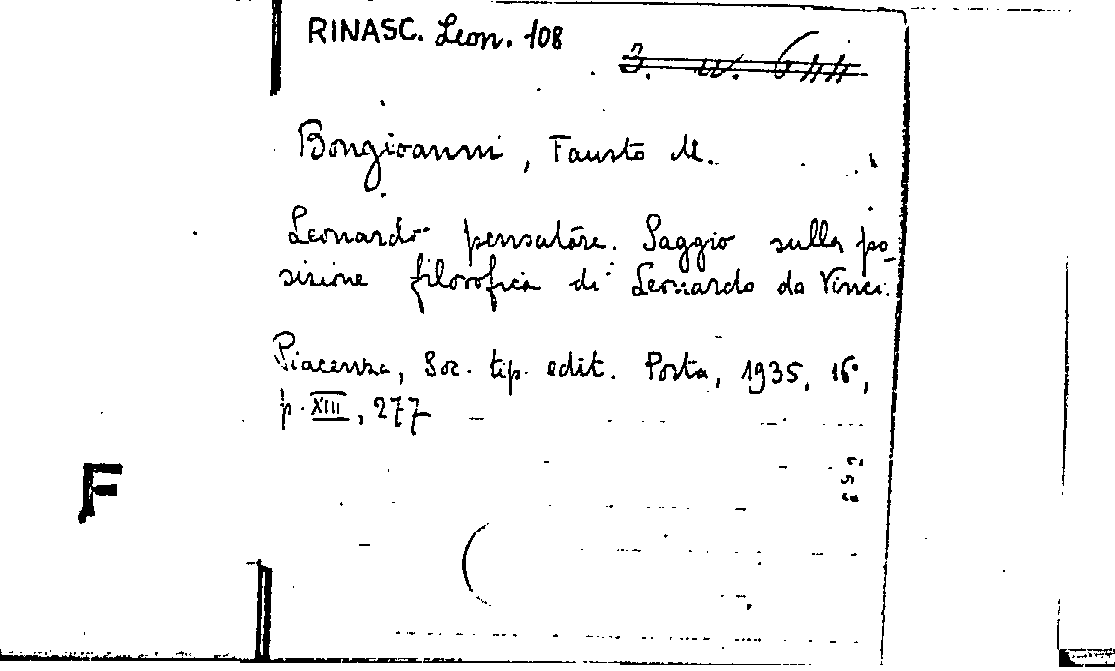 RINASC. Leon. 108
Bongioanni, Fausto M.
Leonardo pensatore. Saggio sulla po-
sizione filosofica di Leonardo da Vinci.
Piacenza, Soc. tip. edit. Porta, 1935, 16°,
p. XIII, 277
F